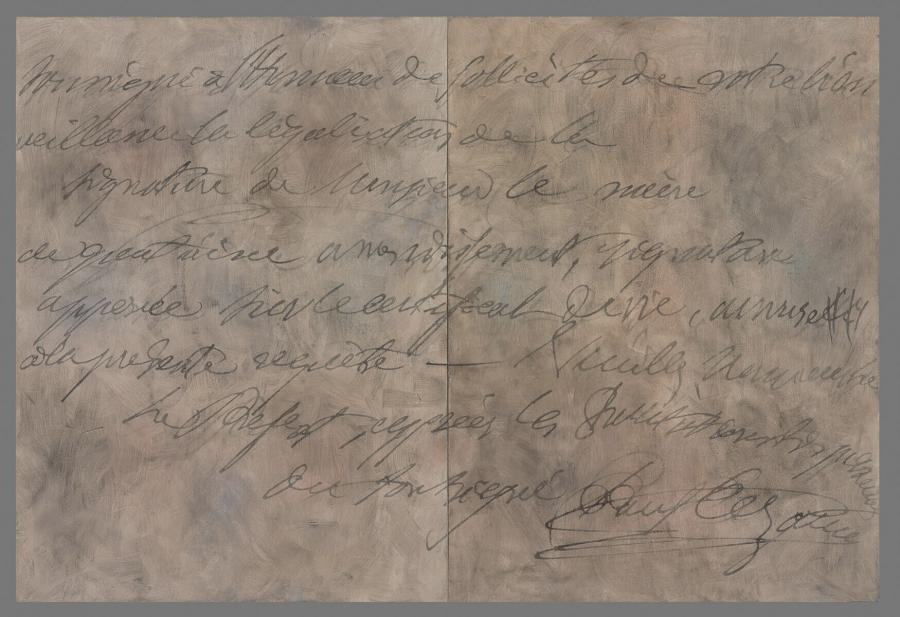 soussigné a l'honneur de solliciter de votre bien
veillance la légalisation de la
signature de Monsieur le maire
de quatrième arrondissement, signature
apposée sur le certificat de vie, annexé
à la présente requête — Veuillez Monsieur le
Préfet, agréer les
du soussigné Paul Cezanne